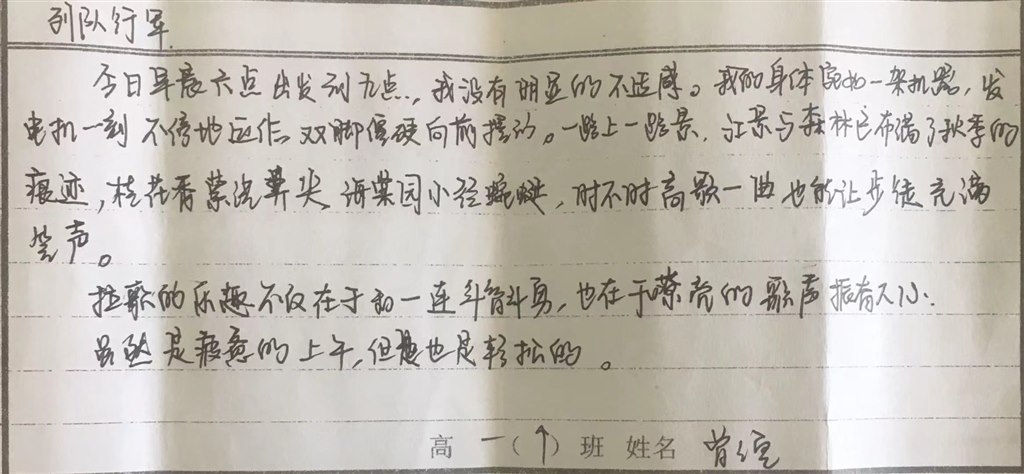 列队行军
今日早晨六点出发到九点,我没有明显的不适感。我的身体宛如一架机器,发
电机一刻不停地运作,双脚僵硬向前摆动。一路上一路景,江景与森林已布满了秋季的
痕迹,桂花香萦绕鼻尖,海棠园小径蜿蜒,时不时高歌一曲也能让步徒充满
笑声。
拉歌的乐趣不仅在于和一连斗智斗勇,也在于嘹亮的歌声振奋人心.
虽然是疲惫的上午,但是也是轻松的。
高一(个)班 姓名 曾